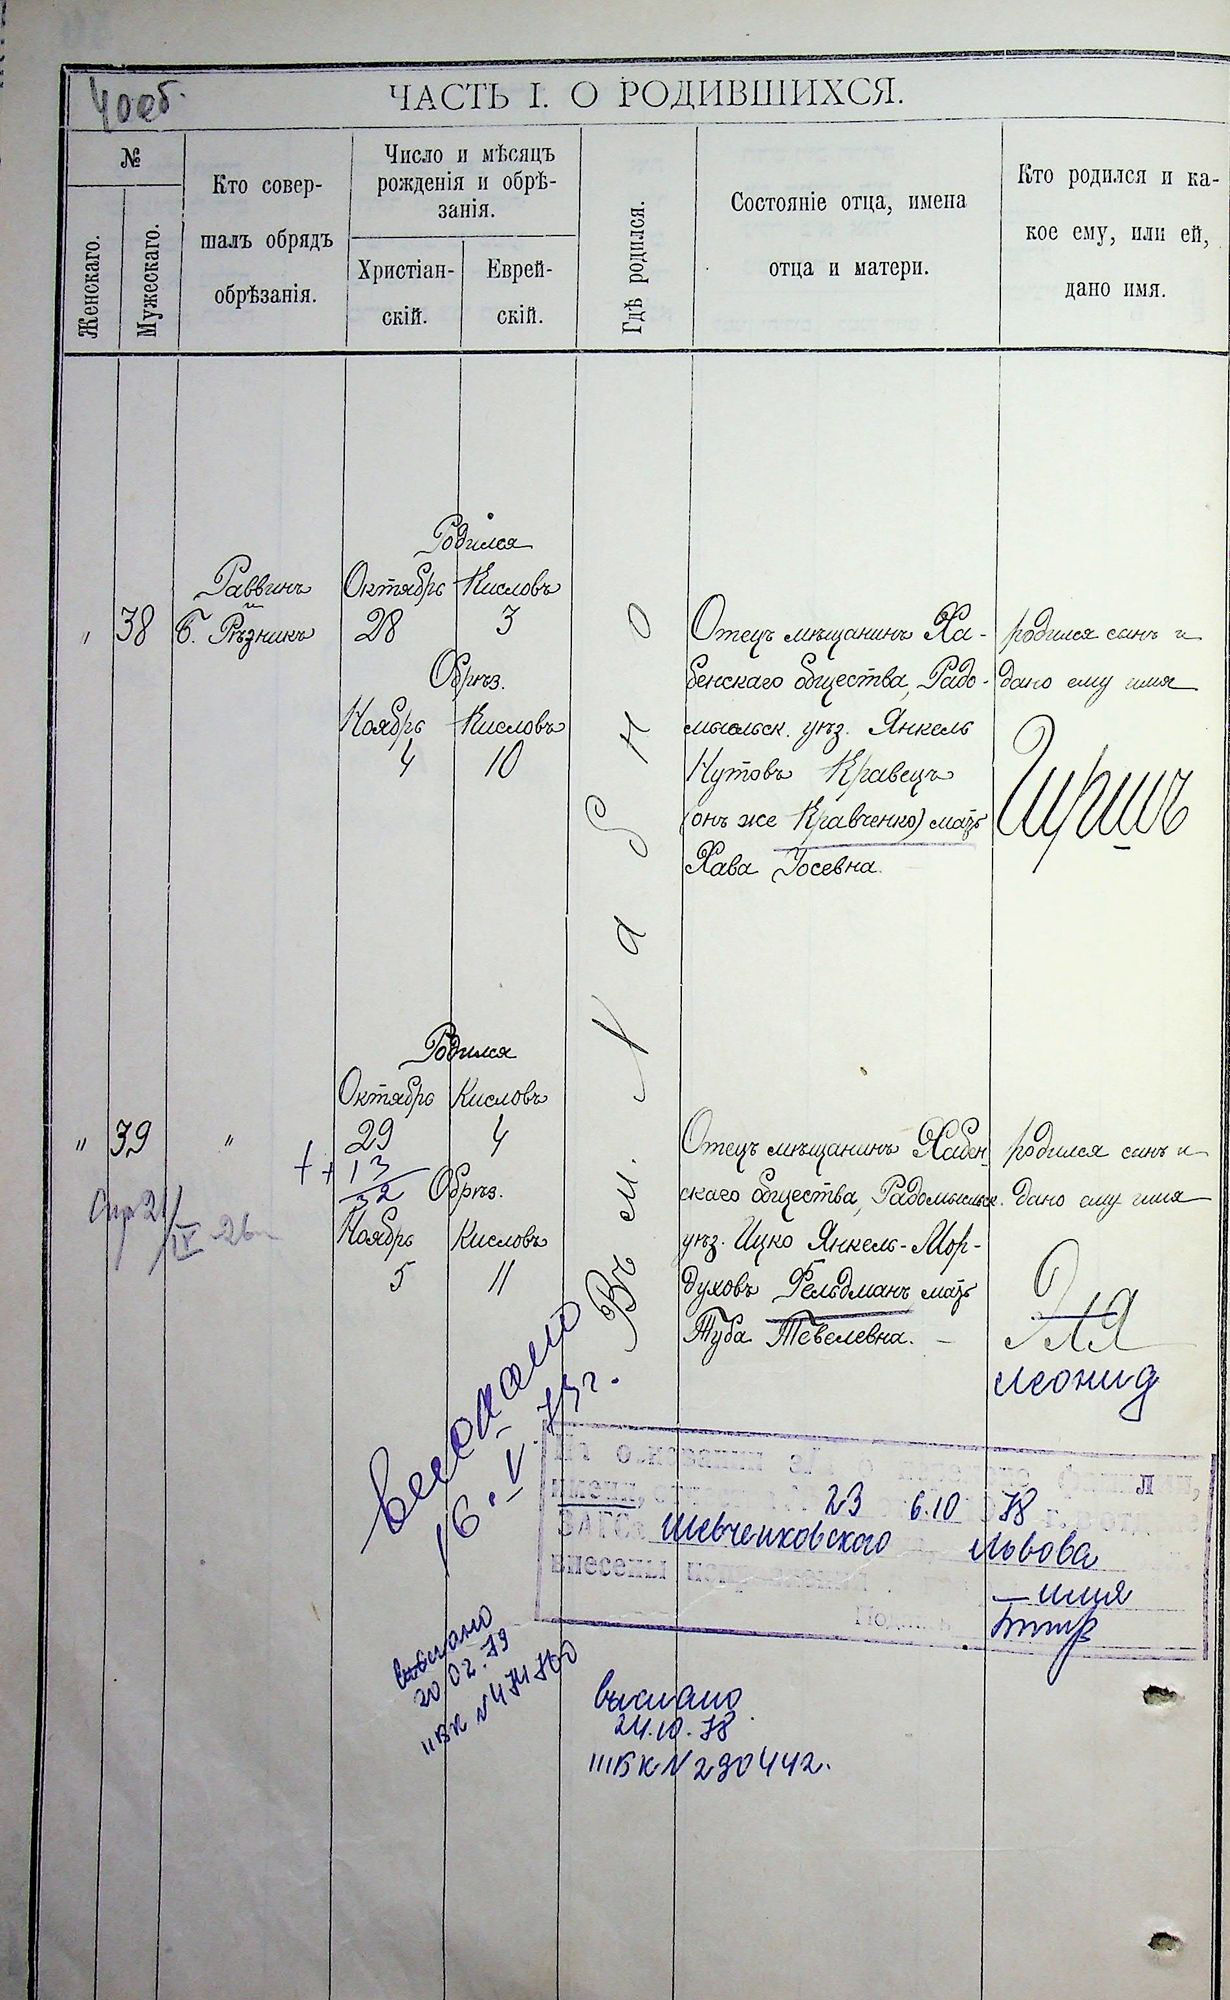 40об.
ЧАСТЬ I. О РОДИВШИХСЯ.
№
Женскаго.
Мужескаго.
Кто совер-
шалъ обрядъ
обрѣзанія.
Число и мѣсяцъ
рожденія и обрѣ-
занія.
Христіан-
скій.
Еврей-
скій.
Гдѣ родился.
Состояніе отца, имена
отца и матери.
Кто родился и ка-
кое ему, или ей,
дано имя.
" 38
Раввинъ
и
Б. Рѣзникъ
Родился
Октябрь Кисловъ
28 3
Обрѣз.
Ноябрь Кисловъ
4 10
Въ м. Хабно
Отецъ мѣщанинъ Ха-
бенскаго общества, Радо-
мысльск. уѣз. Янкель
Нутовъ Кравецъ
(онъ же Кравченко) мать
Хава Іосевна.
родился сынъ и
дано ему имя
Гиршъ
" 39 "
Родился
Октябрь Кисловъ
29 4
13
32
Обрѣз.
Ноябрь Кисловъ
5 11
Отецъ мѣщанинъ Хабен-
скаго общества, Радомысльск.
уѣз. Ицко Янкель-Мор-
духовъ Фельдманъ, мать
Туба Тевелевна. —
родился сынъ и
дано ему имя
Эля
Леонид
выслано
16.V.79г.
имени,
23 6.10 78
ЗАГСа Шевченковского Львова
внесены исправления
— имя
выслано
20 02.79
IIБК №474700
выслано
24.10.78
IIIБК №290442.